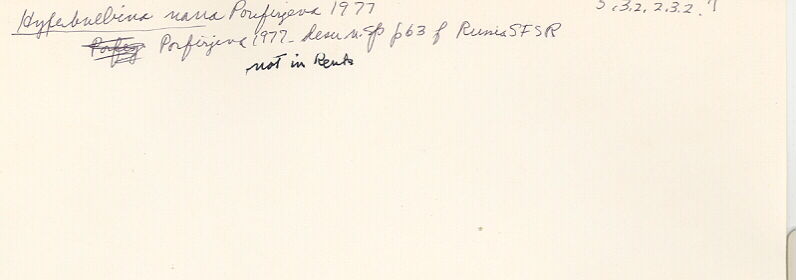 Hyperbulbina nana Porfirjeva 1977 5.3.2.2.3.2.?
Porfirjeva 1977 - descr n. sp p63 f Russia SFSR
not in Kenk